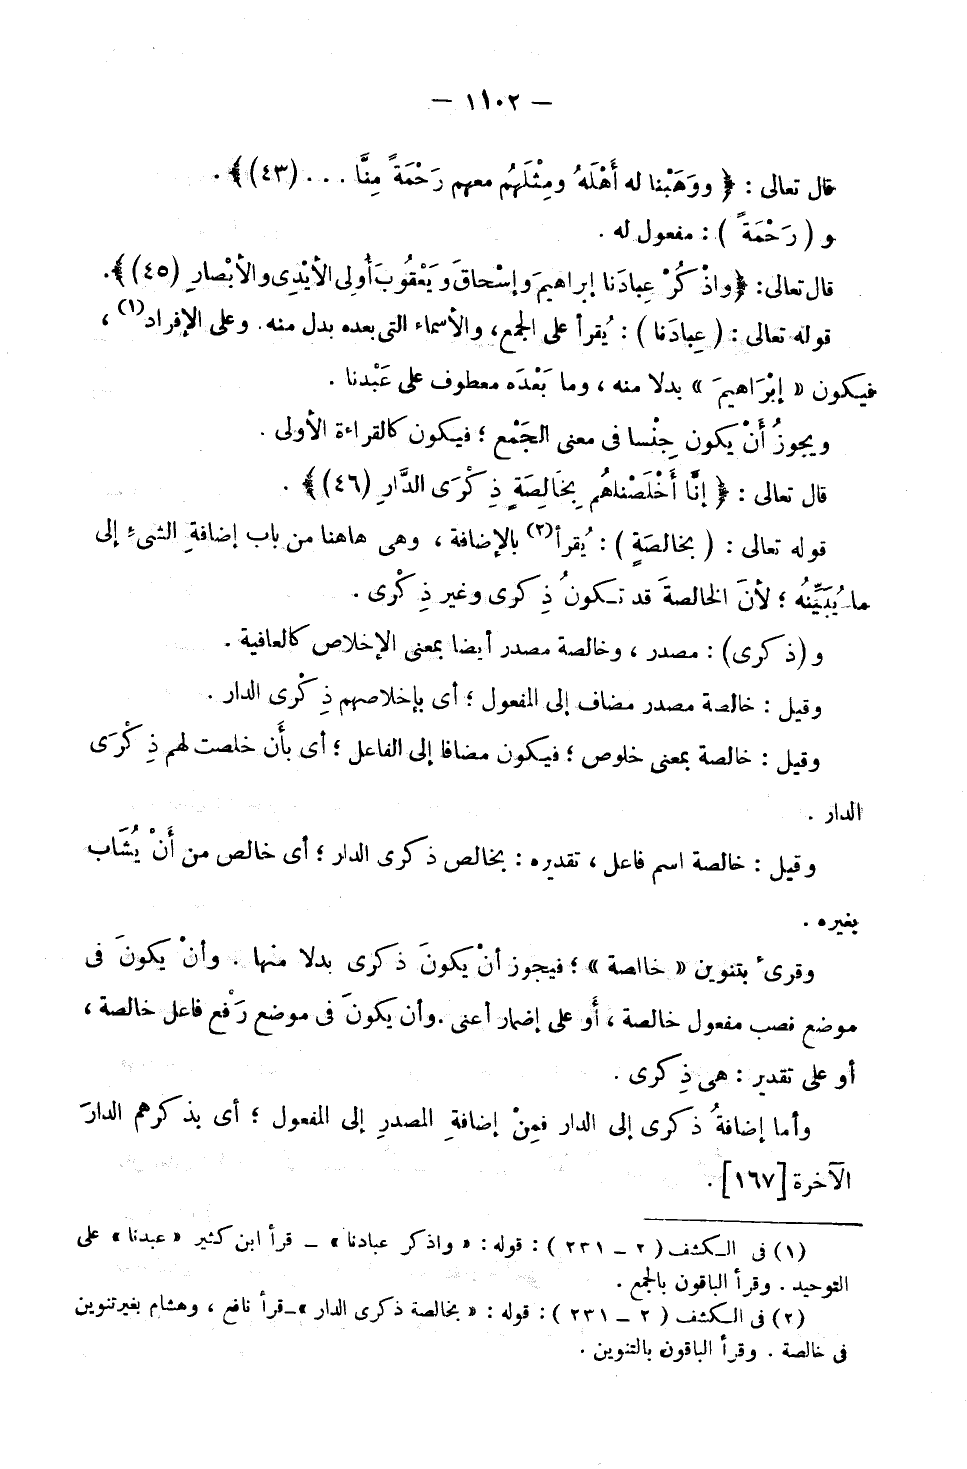 — ١١٠٢ —
قال تعالى : ﴿ ووَهَبْنا له أَهْلَهُ ومِثْلَهُم معهم رَحْمَةً مِنَّا . . . (٤٣)﴾ .
و ( رَحْمَةً ) : مفعول له .
قال تعالى: ﴿واذْكُرْ عِبادَنا إبراهيمَ وإسْحاقَ ويَعْقُوبَ أُولِى الأيْدِى والأبْصارِ (٤٥)﴾.
قوله تعالى : ( عِبادَنا ) : يُقرأ على الجمع، والأسماء التى بعده بدل منه. وعلى الإفراد(١) ،
فيكون « إبْرَاهيمَ » بدلا منه ، وما بَعْدَه معطوف على عَبْدنا .
ويجوزُ أَنْ يكون جِنْسا فى معنى الجَمْع ؛ فيكون كالقراءة الأولى .
قال تعالى : ﴿ إنَّا أَخْلَصْناهُم بِخَالِصَةٍ ذِكْرَى الدَّارِ (٤٦)﴾ .
قوله تعالى : ( بخالصَةٍ ) : يُقرأ(٢) بالإضافة ، وهى هاهنا من باب إضافةِ الشىءِ إلى
ما يُبَيِّنُه ؛ لأنَ الخالصةَ قد تكونُ ذِكرى وغير ذِكْرى .
و (ذكرى) : مصدر ، وخالصة مصدر أيضا بمعنى الإخلاص كالعافية .
وقيل : خالصة مصدر مضاف إلى المفعول ؛ أى بإخلاصهم ذِكْرى الدار .
وقيل : خالصة بمعنى خلوص ؛ فيكون مضافا إلى الفاعل ؛ أى بأَن خلصت لهم ذِكْرَى
الدار .
وقيل : خالصة اسم فاعل ، تقديره : بخالص ذكرى الدار ؛ أى خالص من أَنْ يُشَاب
بغيره .
وقرىء بتنوين « خالصة » ؛ فيجوز أنْ يكونَ ذكرى بدلا منها . وأنْ يكونَ فى
موضع نصب مفعول خالصة ، أَو على إضمار أعنى . وأن يكونَ فى موضع رَفْع فاعل خالصة ،
أو على تقدير : هى ذِكرى .
وأما إضافةُ ذكرى إلى الدار فمِنْ إضافةِ المصدرِ إلى المفعول ؛ أى بذكرهم الدارَ
الآخرة [١٦٧] .
(١) فى الكشف ( ٢ – ٢٣١ ) : قوله : « واذكر عبادنا » – قرأ ابن كثير « عبدنا » على
التوحيد . وقرأ الباقون بالجمع .
(٢) فى الكشف ( ٢ – ٢٣١ ) : قوله : « بخالصة ذكرى الدار » – قرأ نافع ، وهشام بغير تنوين
فى خالصة . وقرأ الباقون بالتنوين .